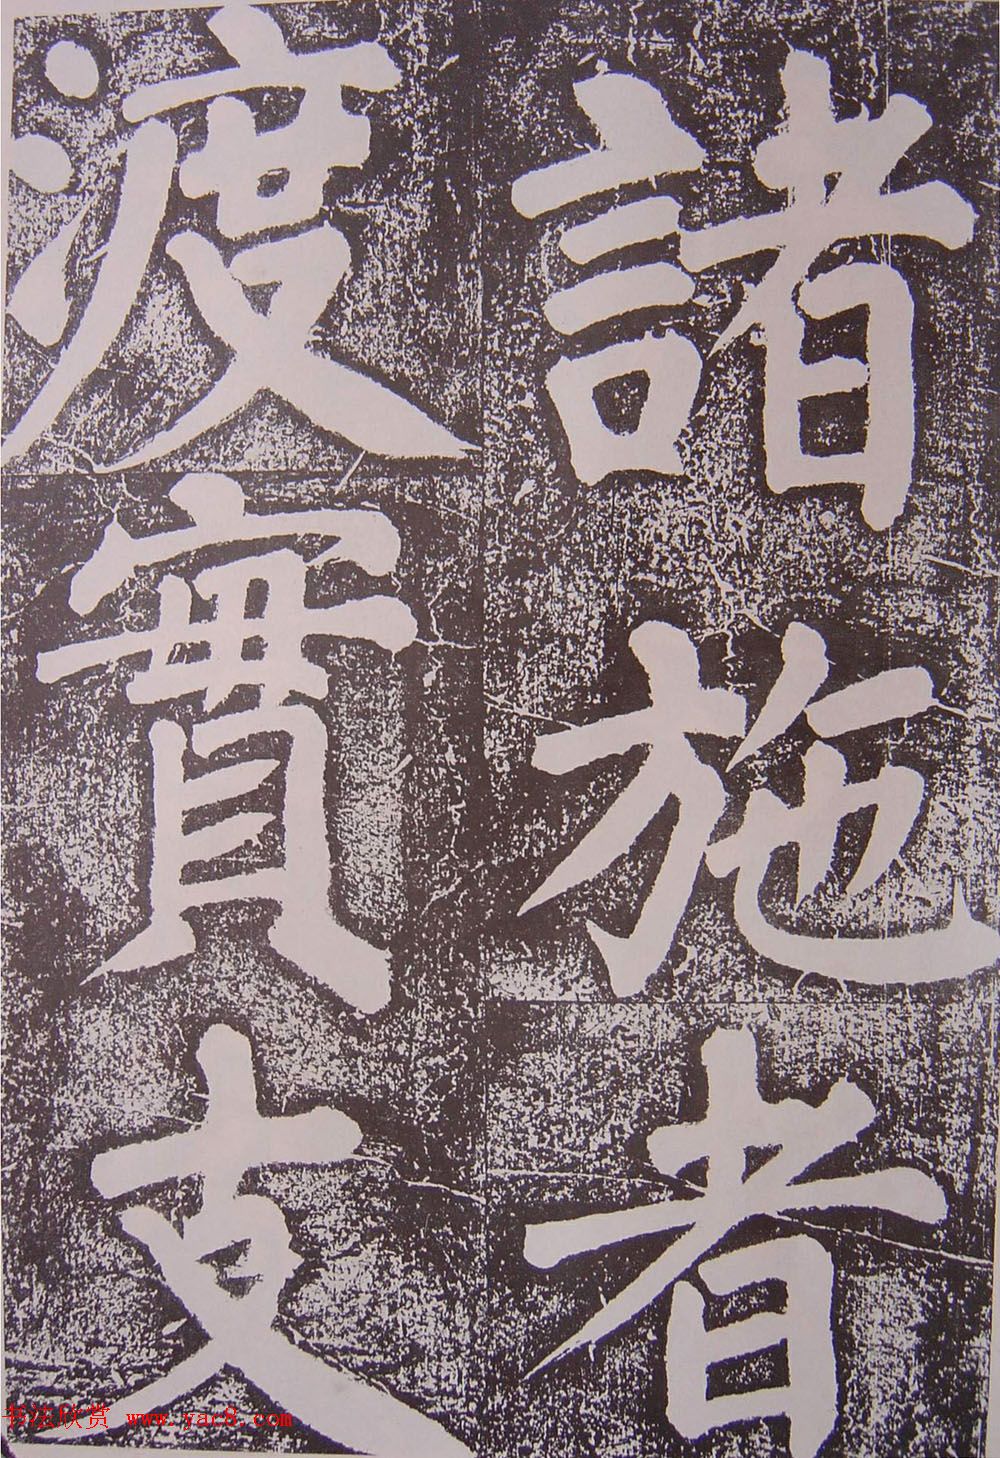 諸施者
渡實支
书法欣赏 www.yac8.com